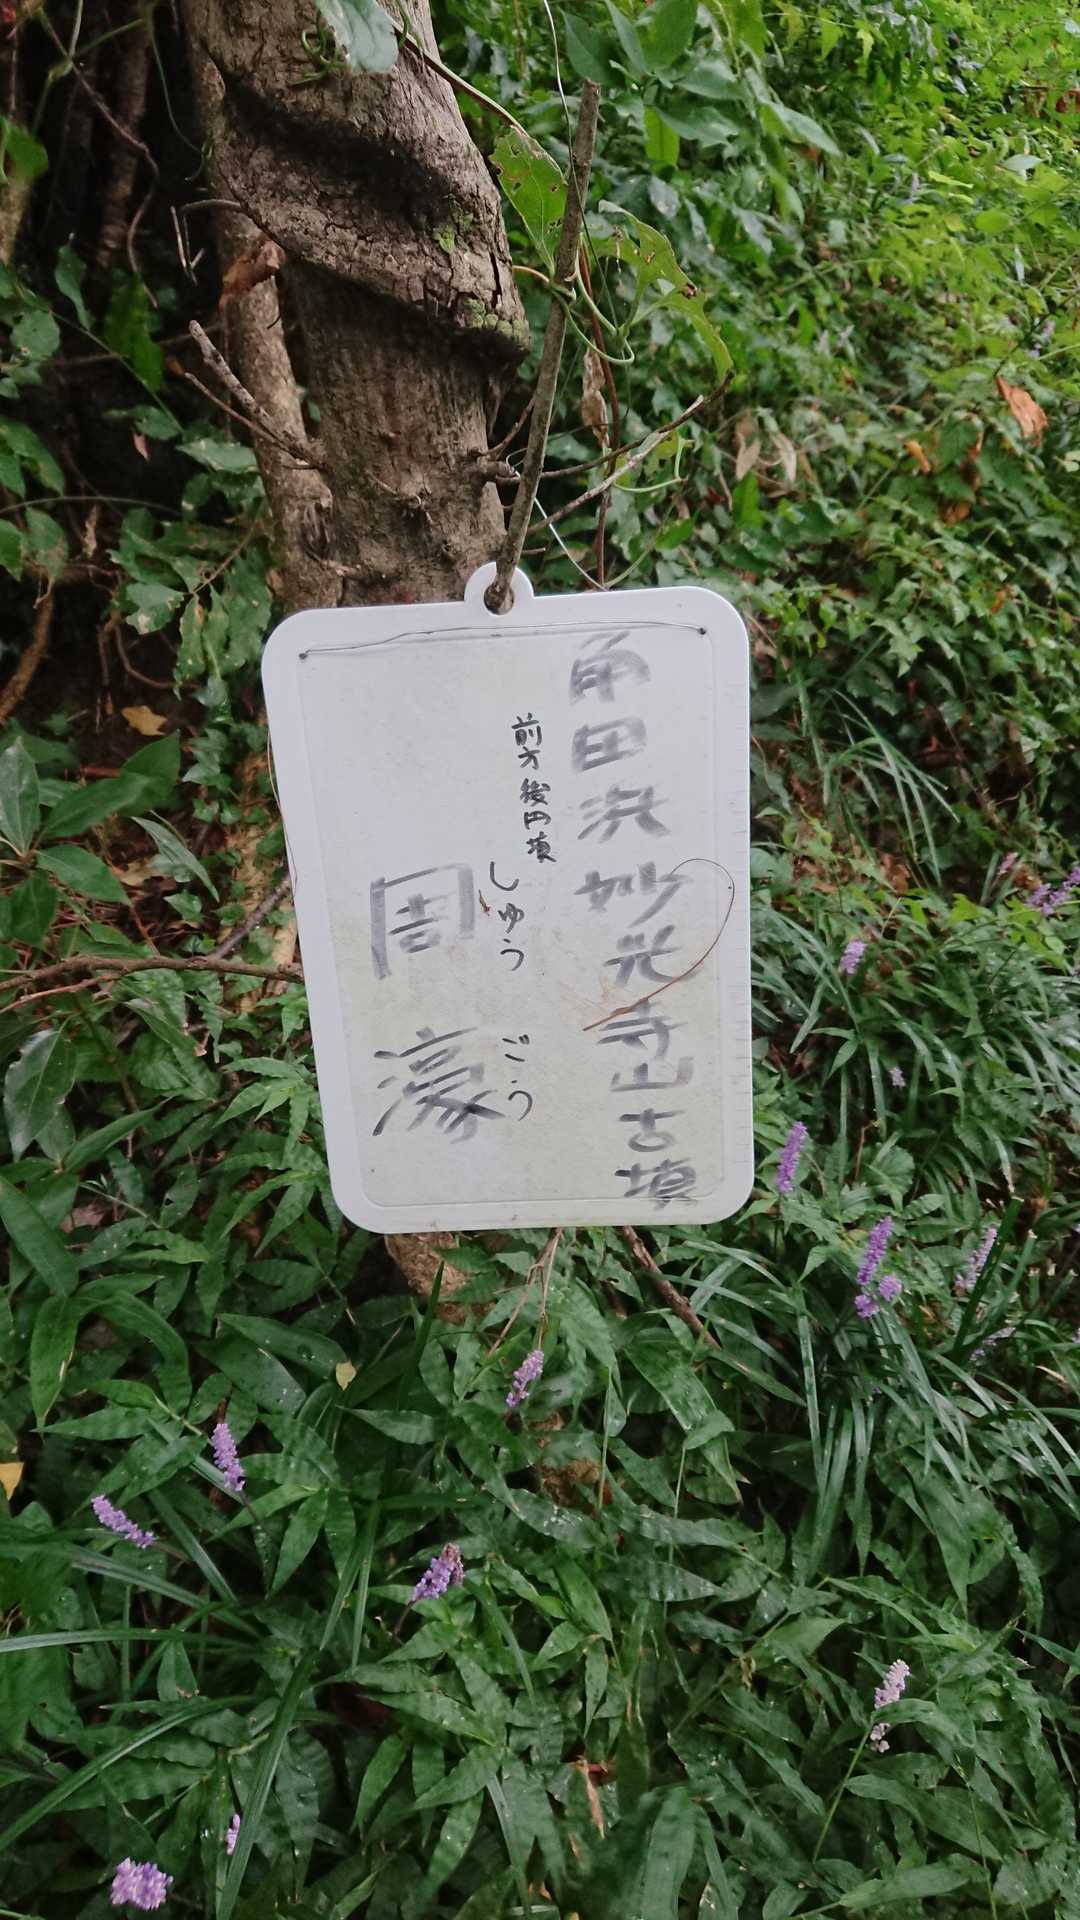 角田浜妙光寺山古墳
前方後円墳
しゅう ごう
周濠